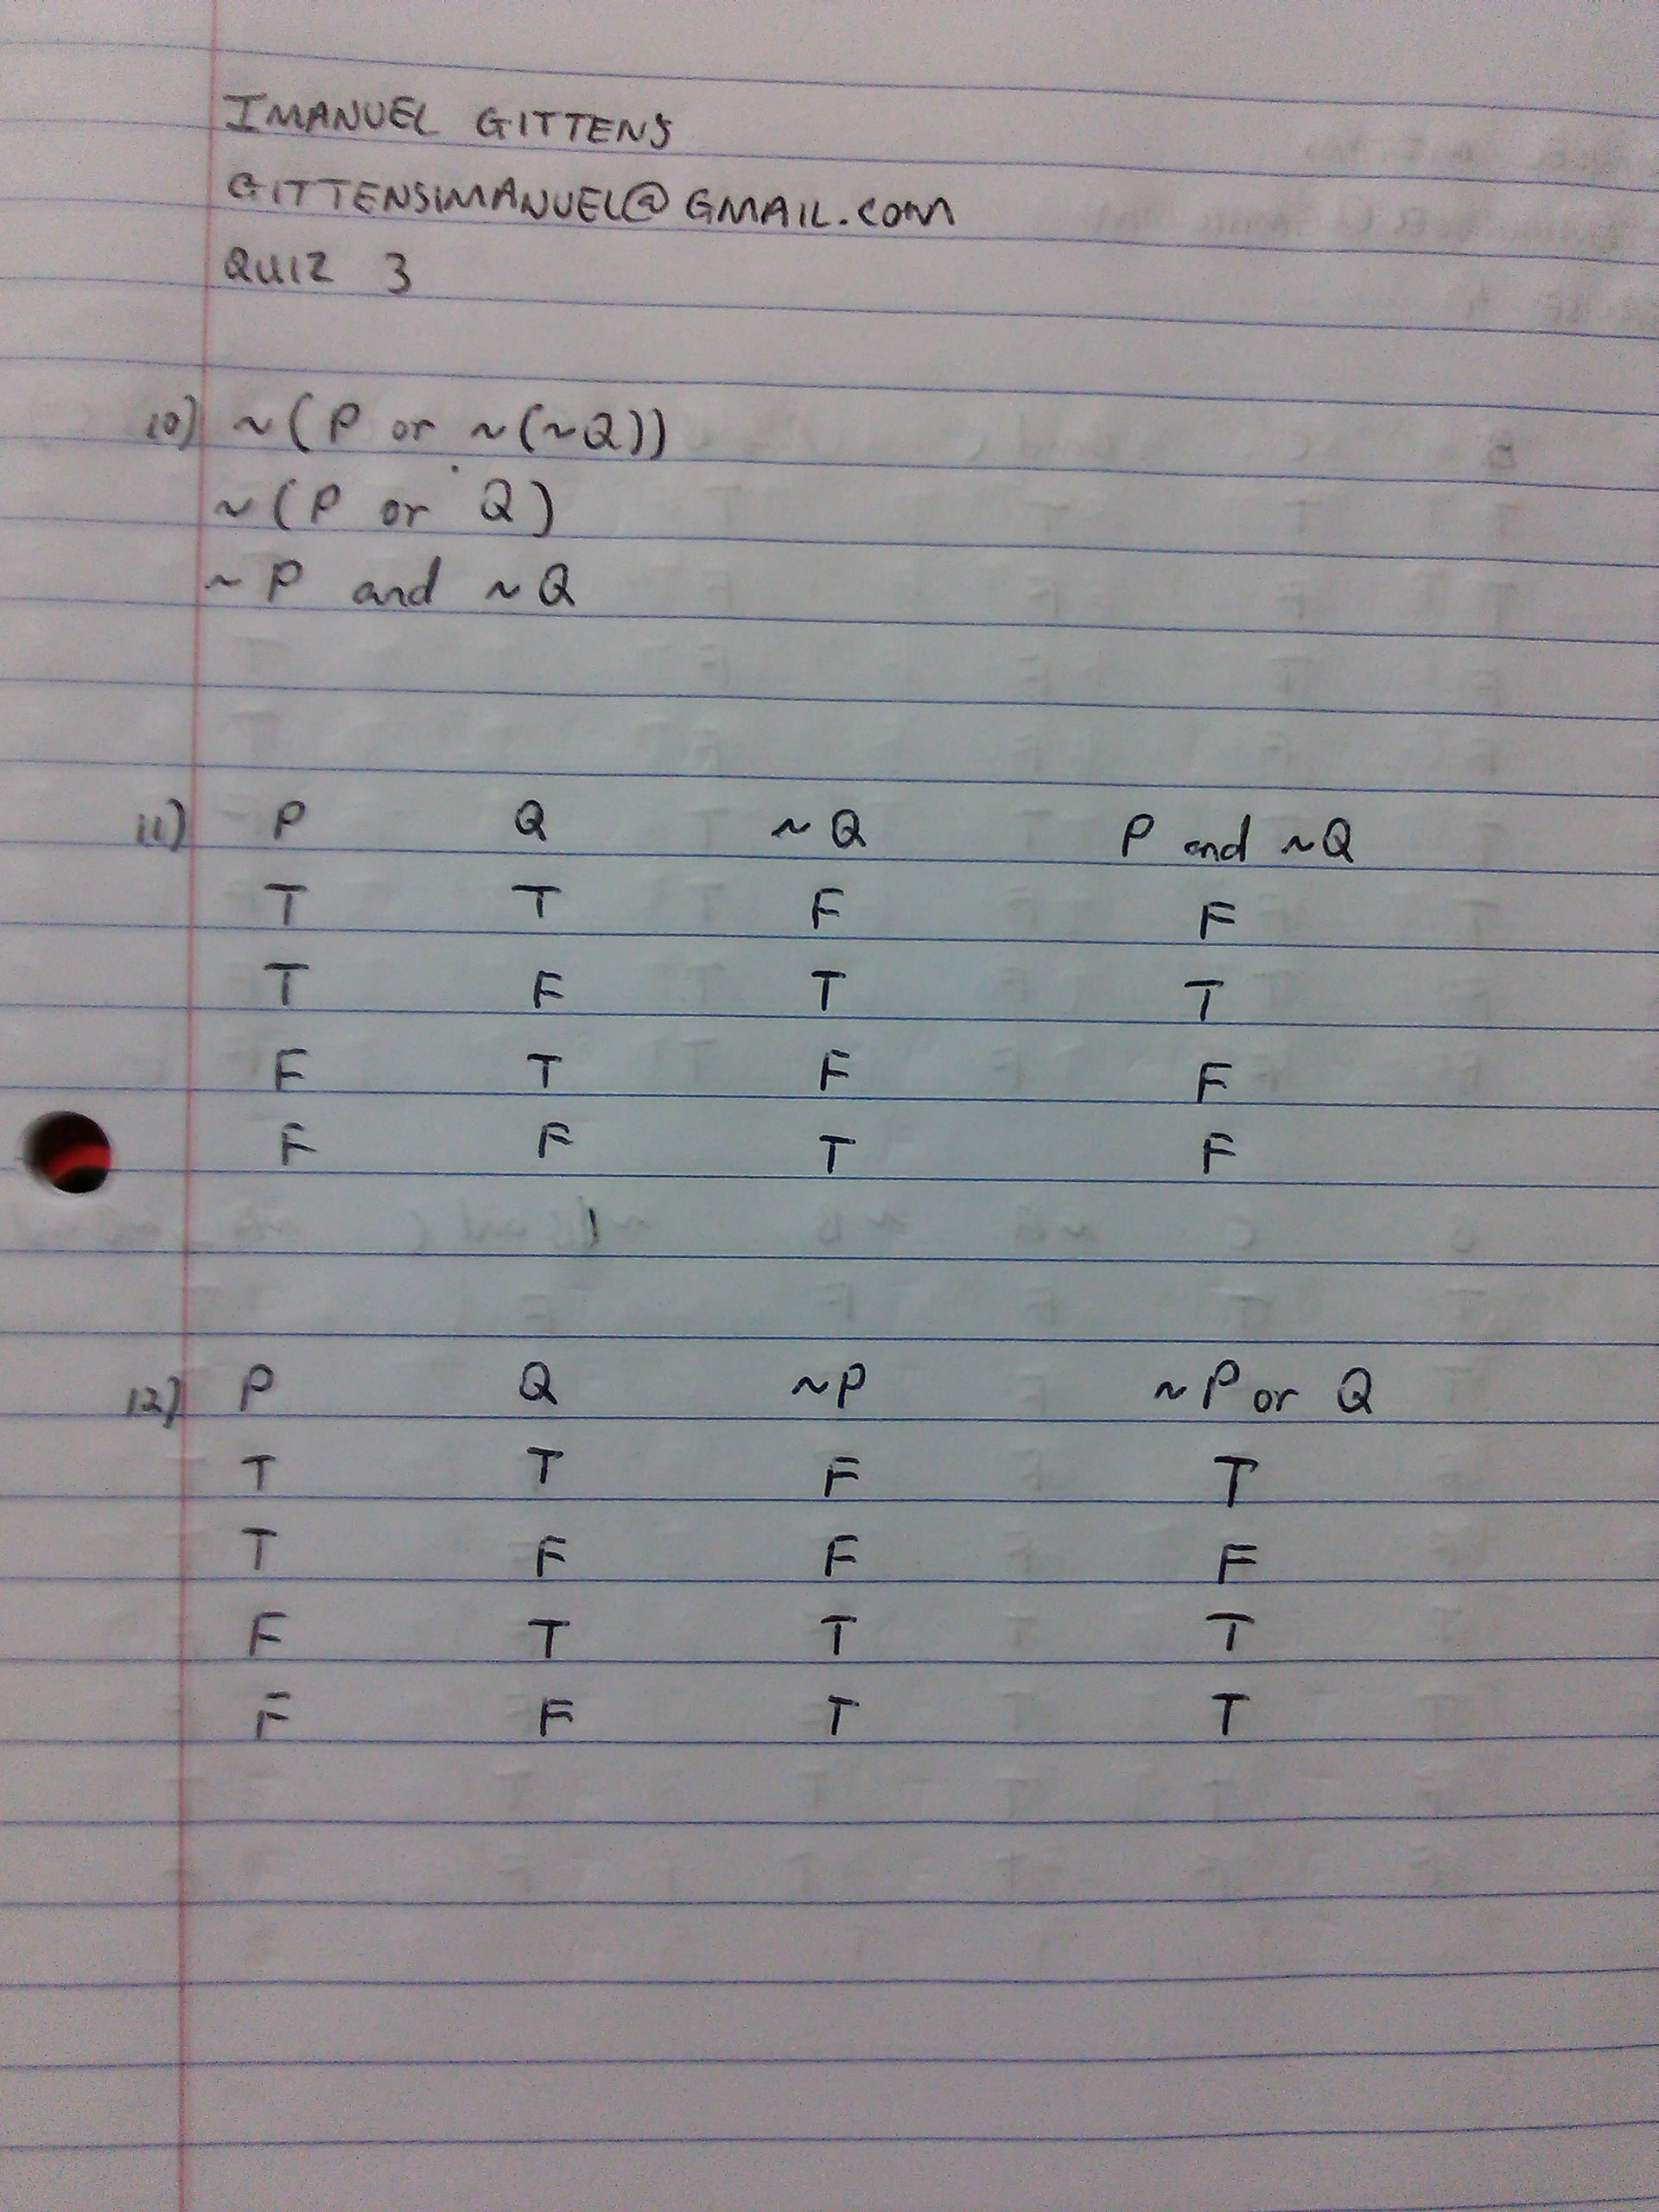 IMANUEL GITTENS
GITTENSIMANUEL@GMAIL.COM
QUIZ 3
10) ~(P or ~(~Q))
~(P or Q)
~P and ~Q
11) P Q ~Q P and ~Q
T T F F
T F T T
F T F F
F F T F
12) P Q ~P ~P or Q
T T F T
T F F F
F T T T
F F T T